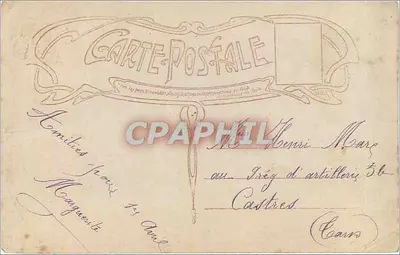 CARTE-POSTALE
CPAPHIL
Amitiés pour 1er Avril
Marguerite
Mr Henri Marc
au Trég d'artillerie 3b
Castres
(Tarn)